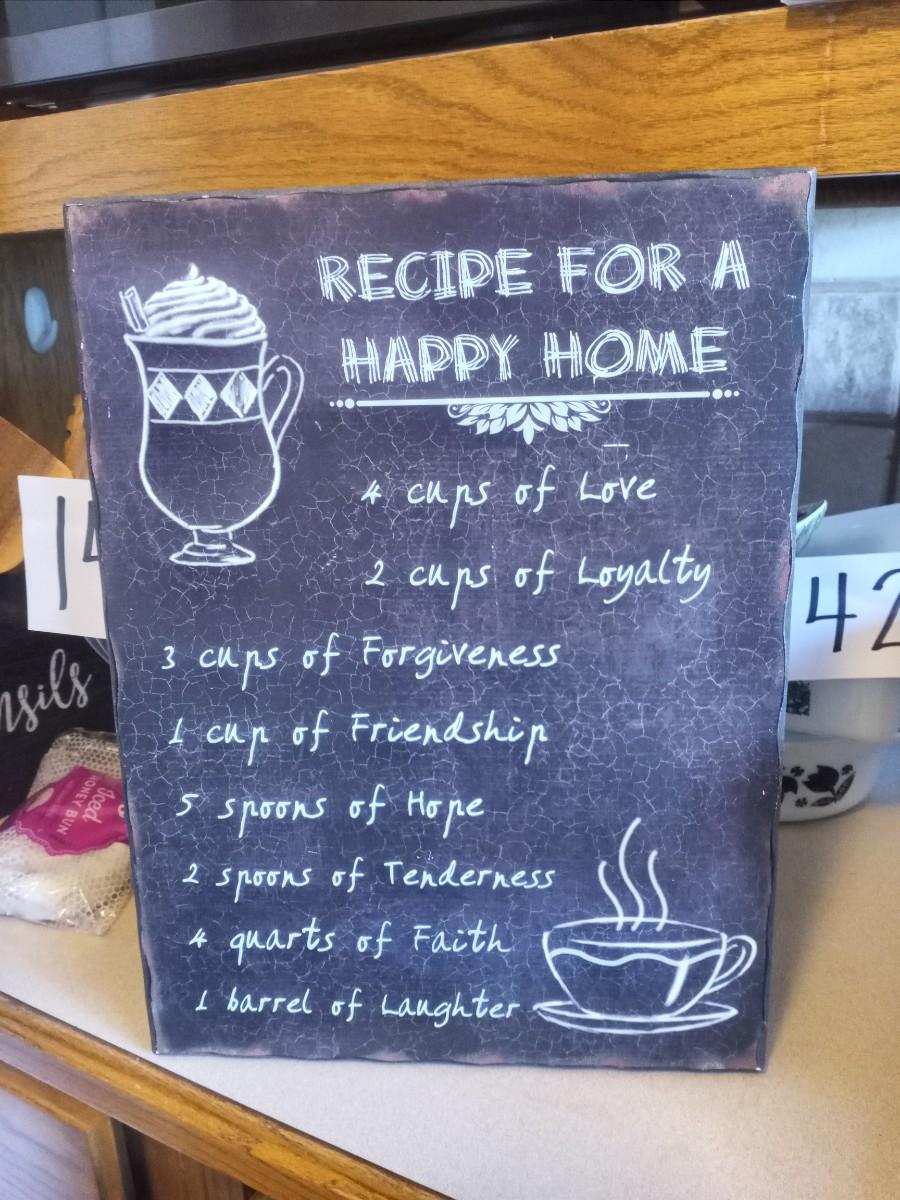 RECIPE FOR A
HAPPY HOME
4 cups of Love
2 cups of Loyalty
3 cups of Forgiveness
1 cup of Friendship
5 spoons of Hope
2 spoons of Tenderness
4 quarts of Faith
1 barrel of Laughter
14
42
nsils
Iced
HONEY BUN